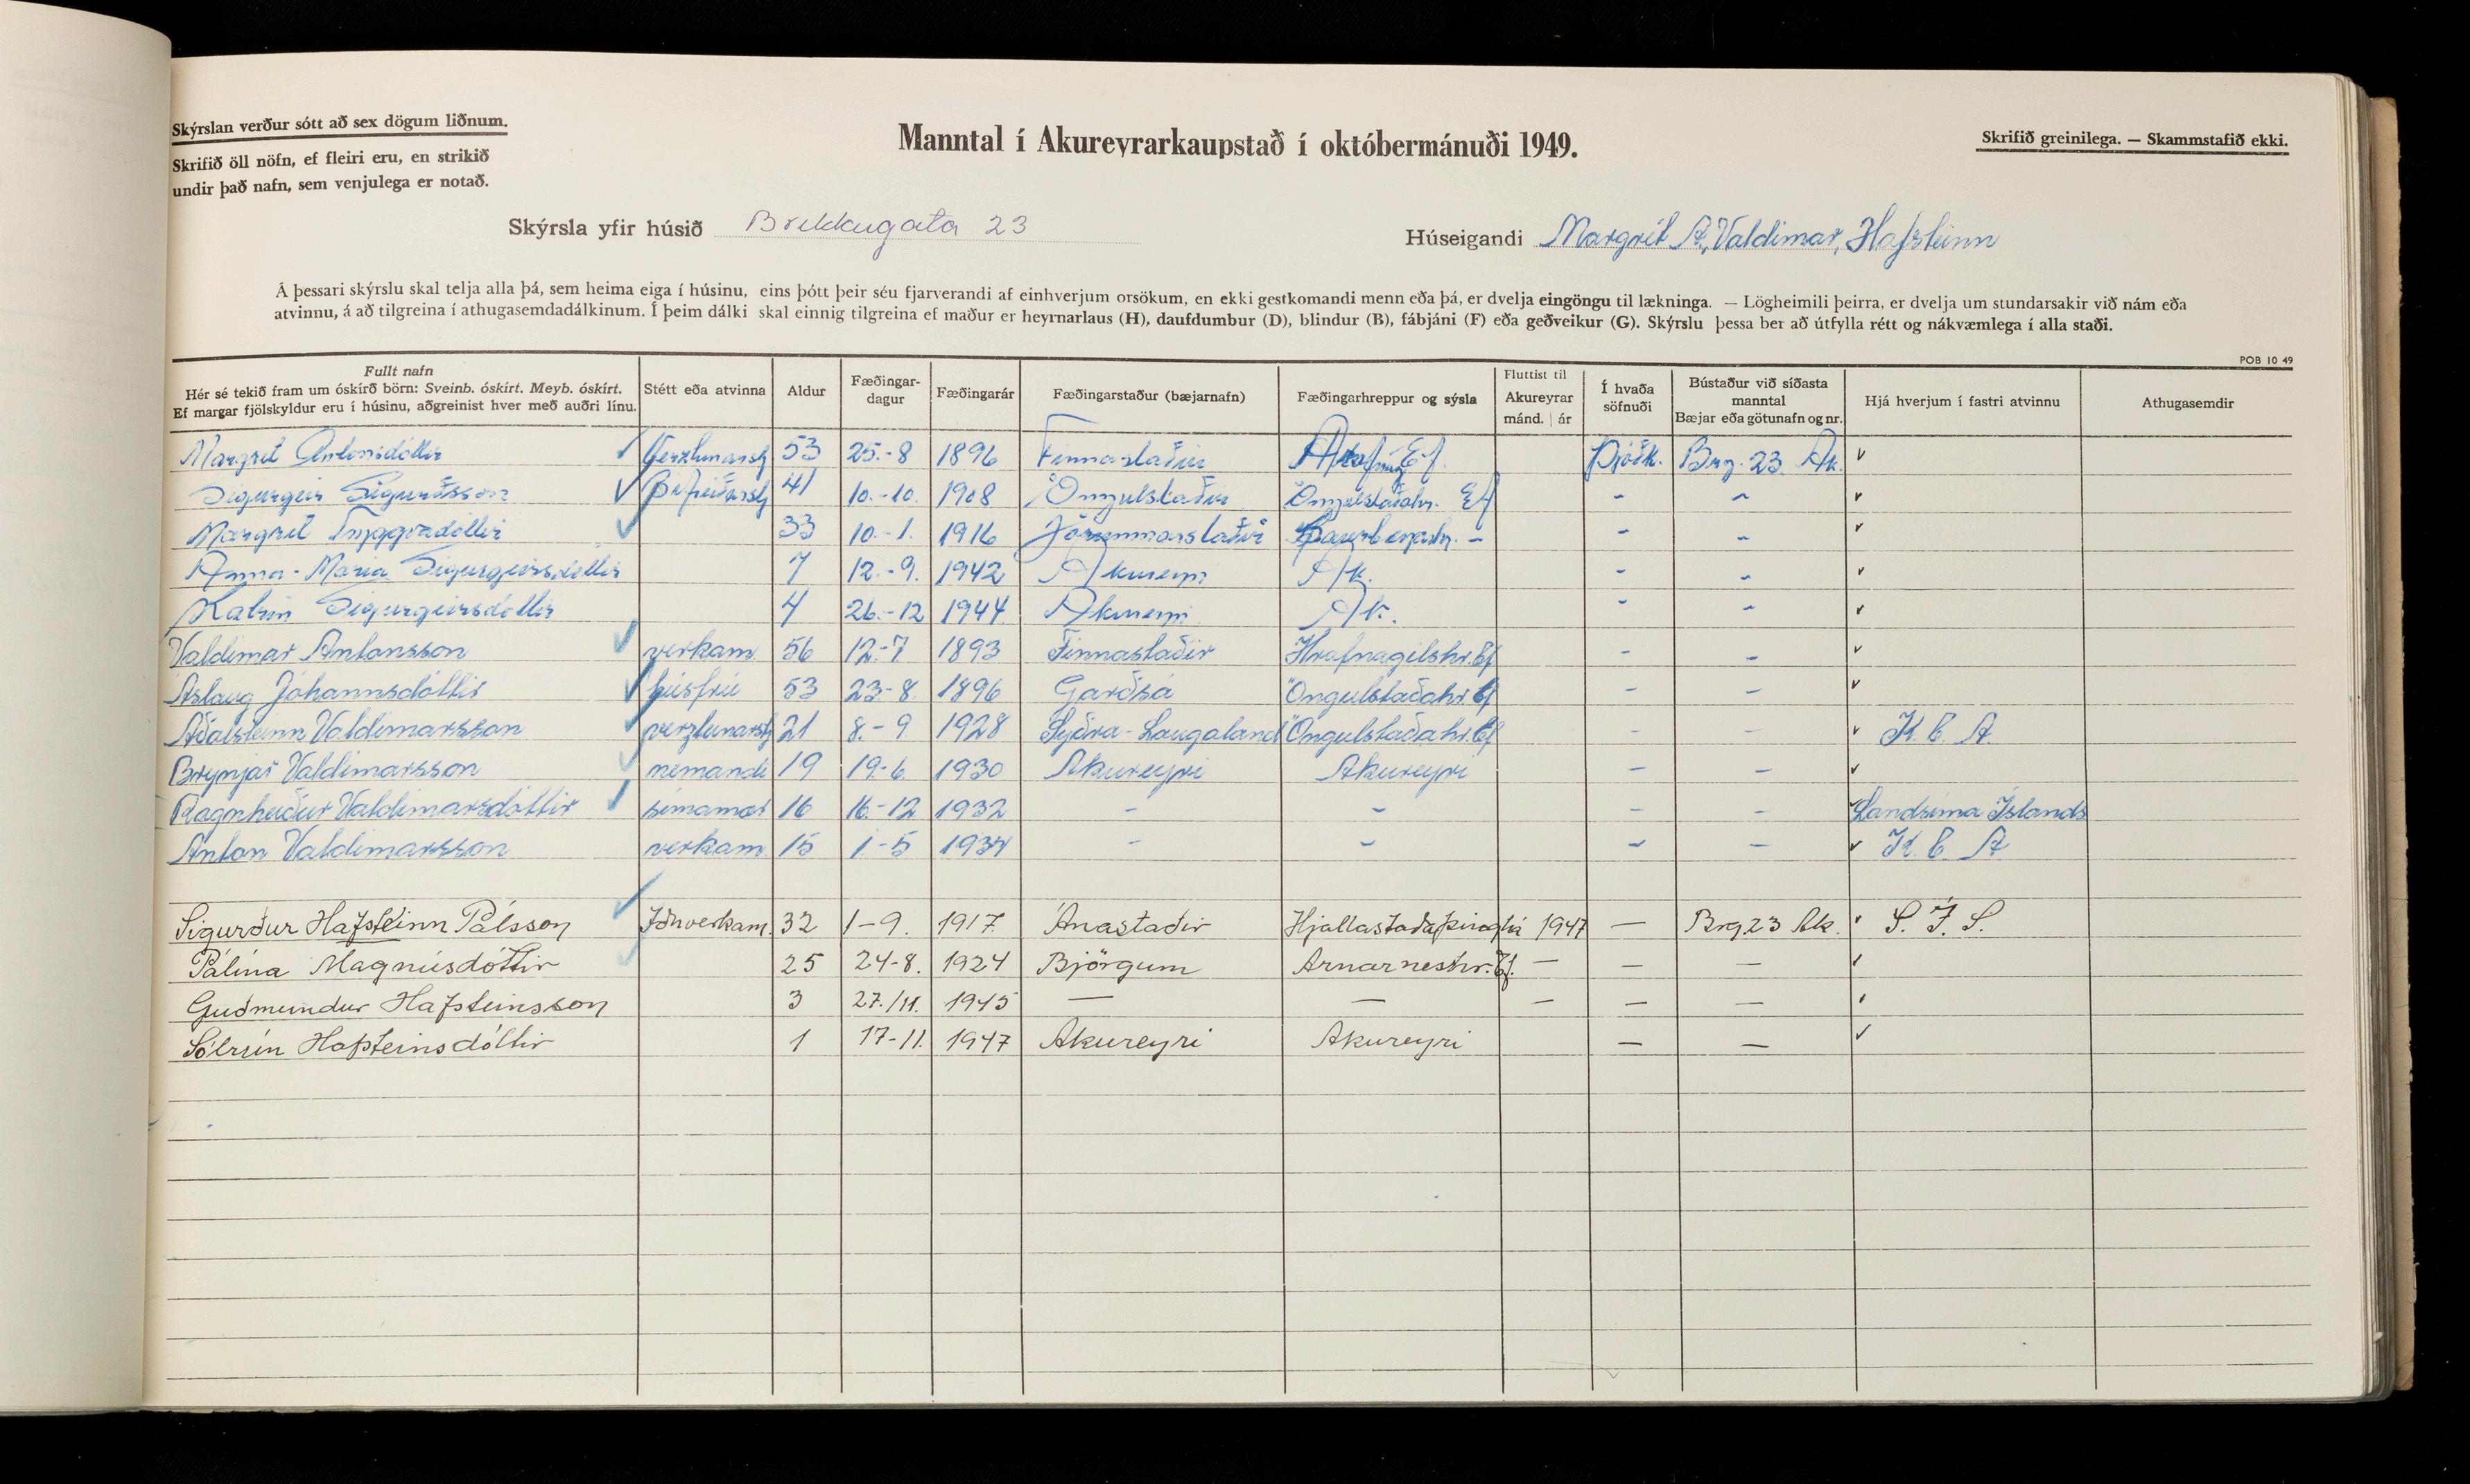 Skýrslan verður sótt að sex dögum liðnum.
Skrifið öll nöfn, ef fleiri eru, en strikið
undir það nafn, sem venjulega er notað.
Manntal í Akureyrarkaupstað í októbermánuði 1949.
Skrifið greinilega. — Skammstafið ekki.
Skýrsla yfir húsið Brekkugata 23
Húseigandi Margrét A, Valdimar, Hafsteinn
Á þessari skýrslu skal telja alla þá, sem heima eiga í húsinu, eins þótt þeir séu fjarverandi af einhverjum orsökum, en ekki gestkomandi menn eða þá, er dvelja eingöngu til lækninga. — Lögheimili þeirra, er dvelja um stundarsakir við nám eða
atvinnu, á að tilgreina í athugasemdadálkinum. Í þeim dálki skal einnig tilgreina ef maður er heyrnarlaus (H), daufdumbur (D), blindur (B), fábjáni (F) eða geðveikur (G). Skýrslu þessa ber að útfylla rétt og nákvæmlega í alla staði.
POB 10 49
Fullt nafn
Hér sé tekið fram um óskírð börn: Sveinb. óskírt. Meyb. óskírt.
Ef margar fjölskyldur eru í húsinu, aðgreinist hver með auðri línu.
Stétt eða atvinna
Aldur
Fæðingar-
dagur
Fæðingarár
Fæðingarstaður (bæjarnafn)
Fæðingarhreppur og sýsla
Fluttist til
Akureyrar
mánd. | ár
Í hvaða
söfnuði
Bústaður við síðasta
manntal
Bæjar eða götunafn og nr.
Hjá hverjum í fastri atvinnu
Athugasemdir
Margrét Antonsdóttir ✓ Verzlunarstj 53 25.-8 1896 Finnastaðir Ef. Þjóðk. Brg. 23 Ak. ✓
Sigurgeir Sigurðsson ✓ Bifreiðarstj 41 10.-10. 1908 Öngulstaðir Öngulstaðahr. Ef - - ✓
Margrét Tryggvadóttir ✓ 33 10.-1. 1916 - - - ✓
Anna-María Sigurgeirsdóttir 7 12.-9. 1942 Akureyri Ak. - - ✓
Katrín Sigurgeirsdóttir 4 26.-12 1944 Akureyri Ak. - - ✓
Valdimar Antonsson ✓ verkam. 56 12.-7 1893 Finnastaðir Hrafnagilshr. Ef - - ✓
Áslaug Jóhannsdóttir ✓ húsfrú 53 23-8. 1896 Garðsá Öngulstaðahr. Ef - - ✓
Aðalsteinn Valdimarsson ✓ verzlunarstj 21 8.-9 1928 Syðra-Laugaland Öngulstaðahr. Ef - - ✓ K. E. A.
Brynjar Valdimarsson ✓ nemandi 19 19-6. 1930 Akureyri Akureyri - - ✓
Ragnheiður Valdimarsdóttir ✓ símamær 16 16-12 1932 - - - - ✓ Landsíma Íslands
Anton Valdimarsson verkam. 15 1-5 1934 - - - - ✓ K. E. A
Sigurður Hafsteinn Pálsson ✓ Iðnverkam. 32 1-9. 1917 Ánastaðir Hjallastaðaþinghá 1947 — Brg 23 Ak. ✓ S. Í. S.
Pálína Magnúsdóttir ✓ 25 24-8. 1924 Björgum Arnarneshr. Ef. — — — ✓
Guðmundur Hafsteinsson 3 27./11. 1945 — — — — — ✓
Sólrún Hafsteinsdóttir 1 17-11. 1947 Akureyri Akureyri — — ✓